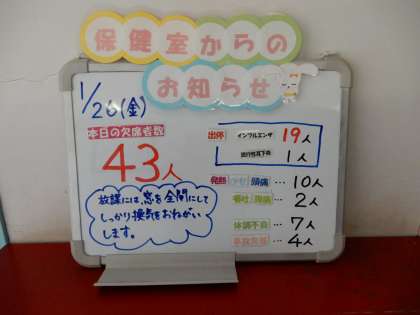 保健室からの
お知らせ
1/26(金)
本日の欠席者数
43人
放課には、窓を全開にして
しっかり換気をおねがい
します。
出停 インフルエンザ 19人
流行性耳下炎 1人
発熱 カゼ 頭痛 … 10人
嘔吐 腹痛 … 2人
体調不良 … 7人
事故欠席 … 4人